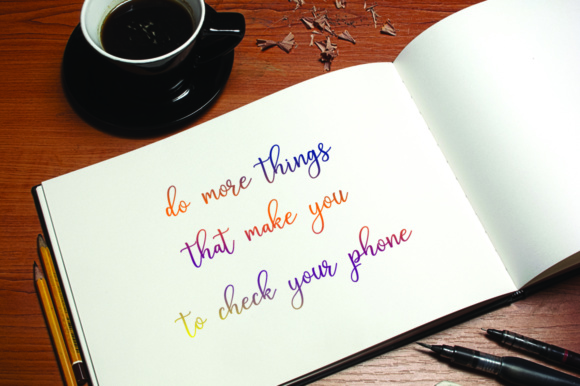 do more things
that make you
to check your phone